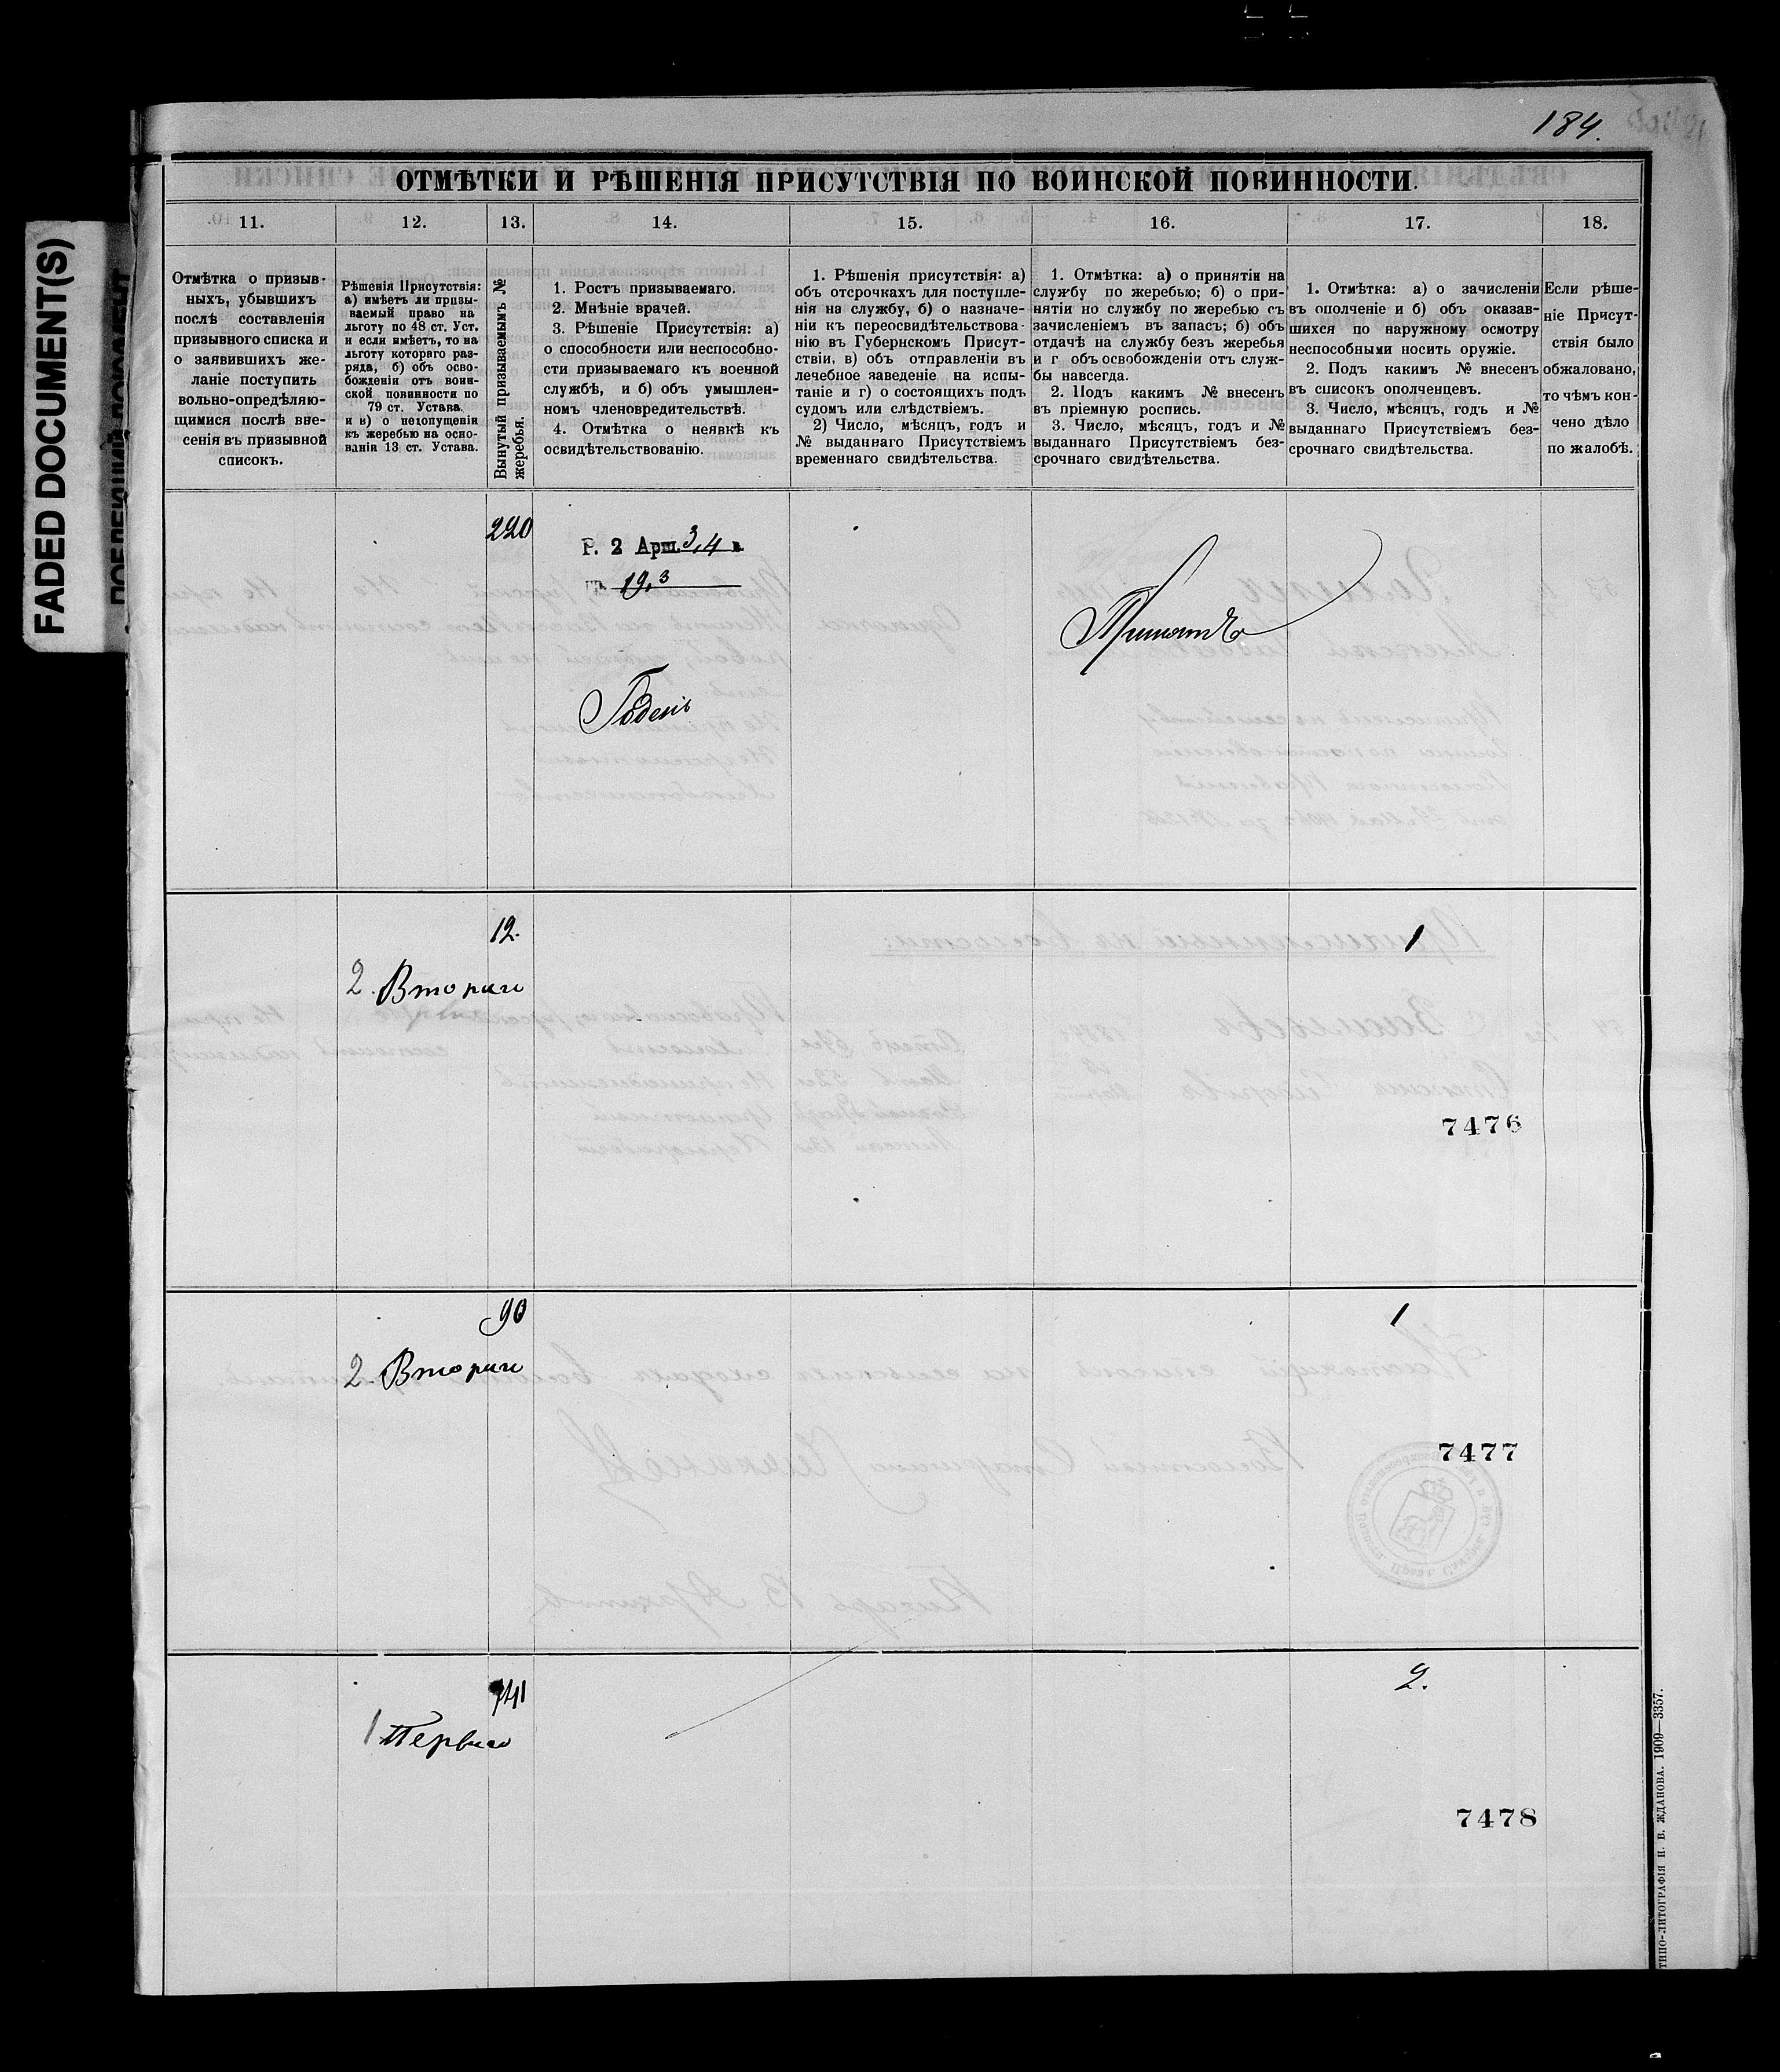 184.
FADED DOCUMENT(S)
ОТМѢТКИ И РѢШЕНІЯ ПРИСУТСТВІЯ ПО ВОИНСКОЙ ПОВИННОСТИ.
11.
12.
13.
14.
15.
16.
17.
18.
Отмѣтка о призыв-
ныхъ, убывшихъ
послѣ составленія
призывного списка и
о заявившихъ же-
ланіе поступить
вольно-опредѣляю-
щимися послѣ вне-
сенія въ призывной
списокъ.
Рѣшенія Присутствія:
а) имѣетъ ли призы-
ваемый право на
льготу по 48 ст. Уст.
и если имѣетъ, то на
льготу котораго раз-
ряда, б) объ осво-
божденіи отъ воин-
ской повинности по
79 ст. Устава.
и в) о недопущеніи
къ жеребью на осно-
ваніи 13 ст. Устава.
Вынутый призываемымъ №
жеребья.
1. Ростъ призываемаго.
2. Мнѣніе врачей.
3. Рѣшеніе Присутствія: а)
о способности или неспособно-
сти призываемаго къ военной
службѣ, и б) объ умышлен-
номъ членовредительствѣ.
4. Отмѣтка о неявкѣ къ
освидѣтельствованію.
1. Рѣшенія присутствія: а)
объ отсрочкахъ для поступле-
нія на службу, б) о назначе-
ніи къ переосвидѣтельствова-
нію въ Губернскомъ Присут-
ствіи, в) объ отправленіи въ
лечебное заведеніе на испы-
таніе и г) о состоящихъ подъ
судомъ или слѣдствіемъ.
2) Число, мѣсяцъ, годъ и
№ выданнаго Присутствіемъ
временнаго свидѣтельства.
1. Отмѣтка: а) о принятіи на
службу по жеребью; б) о при-
нятіи но службу по жеребью съ
зачисленіемъ въ запасъ; б) объ
отдачѣ на службу безъ жеребья
и г объ освобожденіи отъ служ-
бы навсегда.
2. Подъ какимъ № внесенъ
въ пріемную роспись.
3. Число, мѣсяцъ, годъ и №
выданнаго Присутствіемъ без-
срочнаго свидѣтельства.
1. Отмѣтка: а) о зачисленіи
въ ополченіе и б) объ оказав-
шихся по наружному осмотру
неспособными носить оружіе.
2. Подъ какимъ № внесенъ
въ списокъ ополченцевъ.
3. Число, мѣсяцъ, годъ и №
выданнаго Присутствіемъ без-
срочнаго свидѣтельства.
Если рѣше-
ніе Присут-
ствія было
обжаловано,
то чѣмъ кон-
чено дѣло
по жалобѣ.
220
Р. 2 Арш. 3,4 в.
19,3
Годенъ
Принятъ
12.
2. Второго
1
7476
90
2. Второго
1
7477
741
1 Перваго
2.
7478
ТИПО-ЛИТОГРАФІЯ Н. В. ЖДАНОВА. 1909—3357.